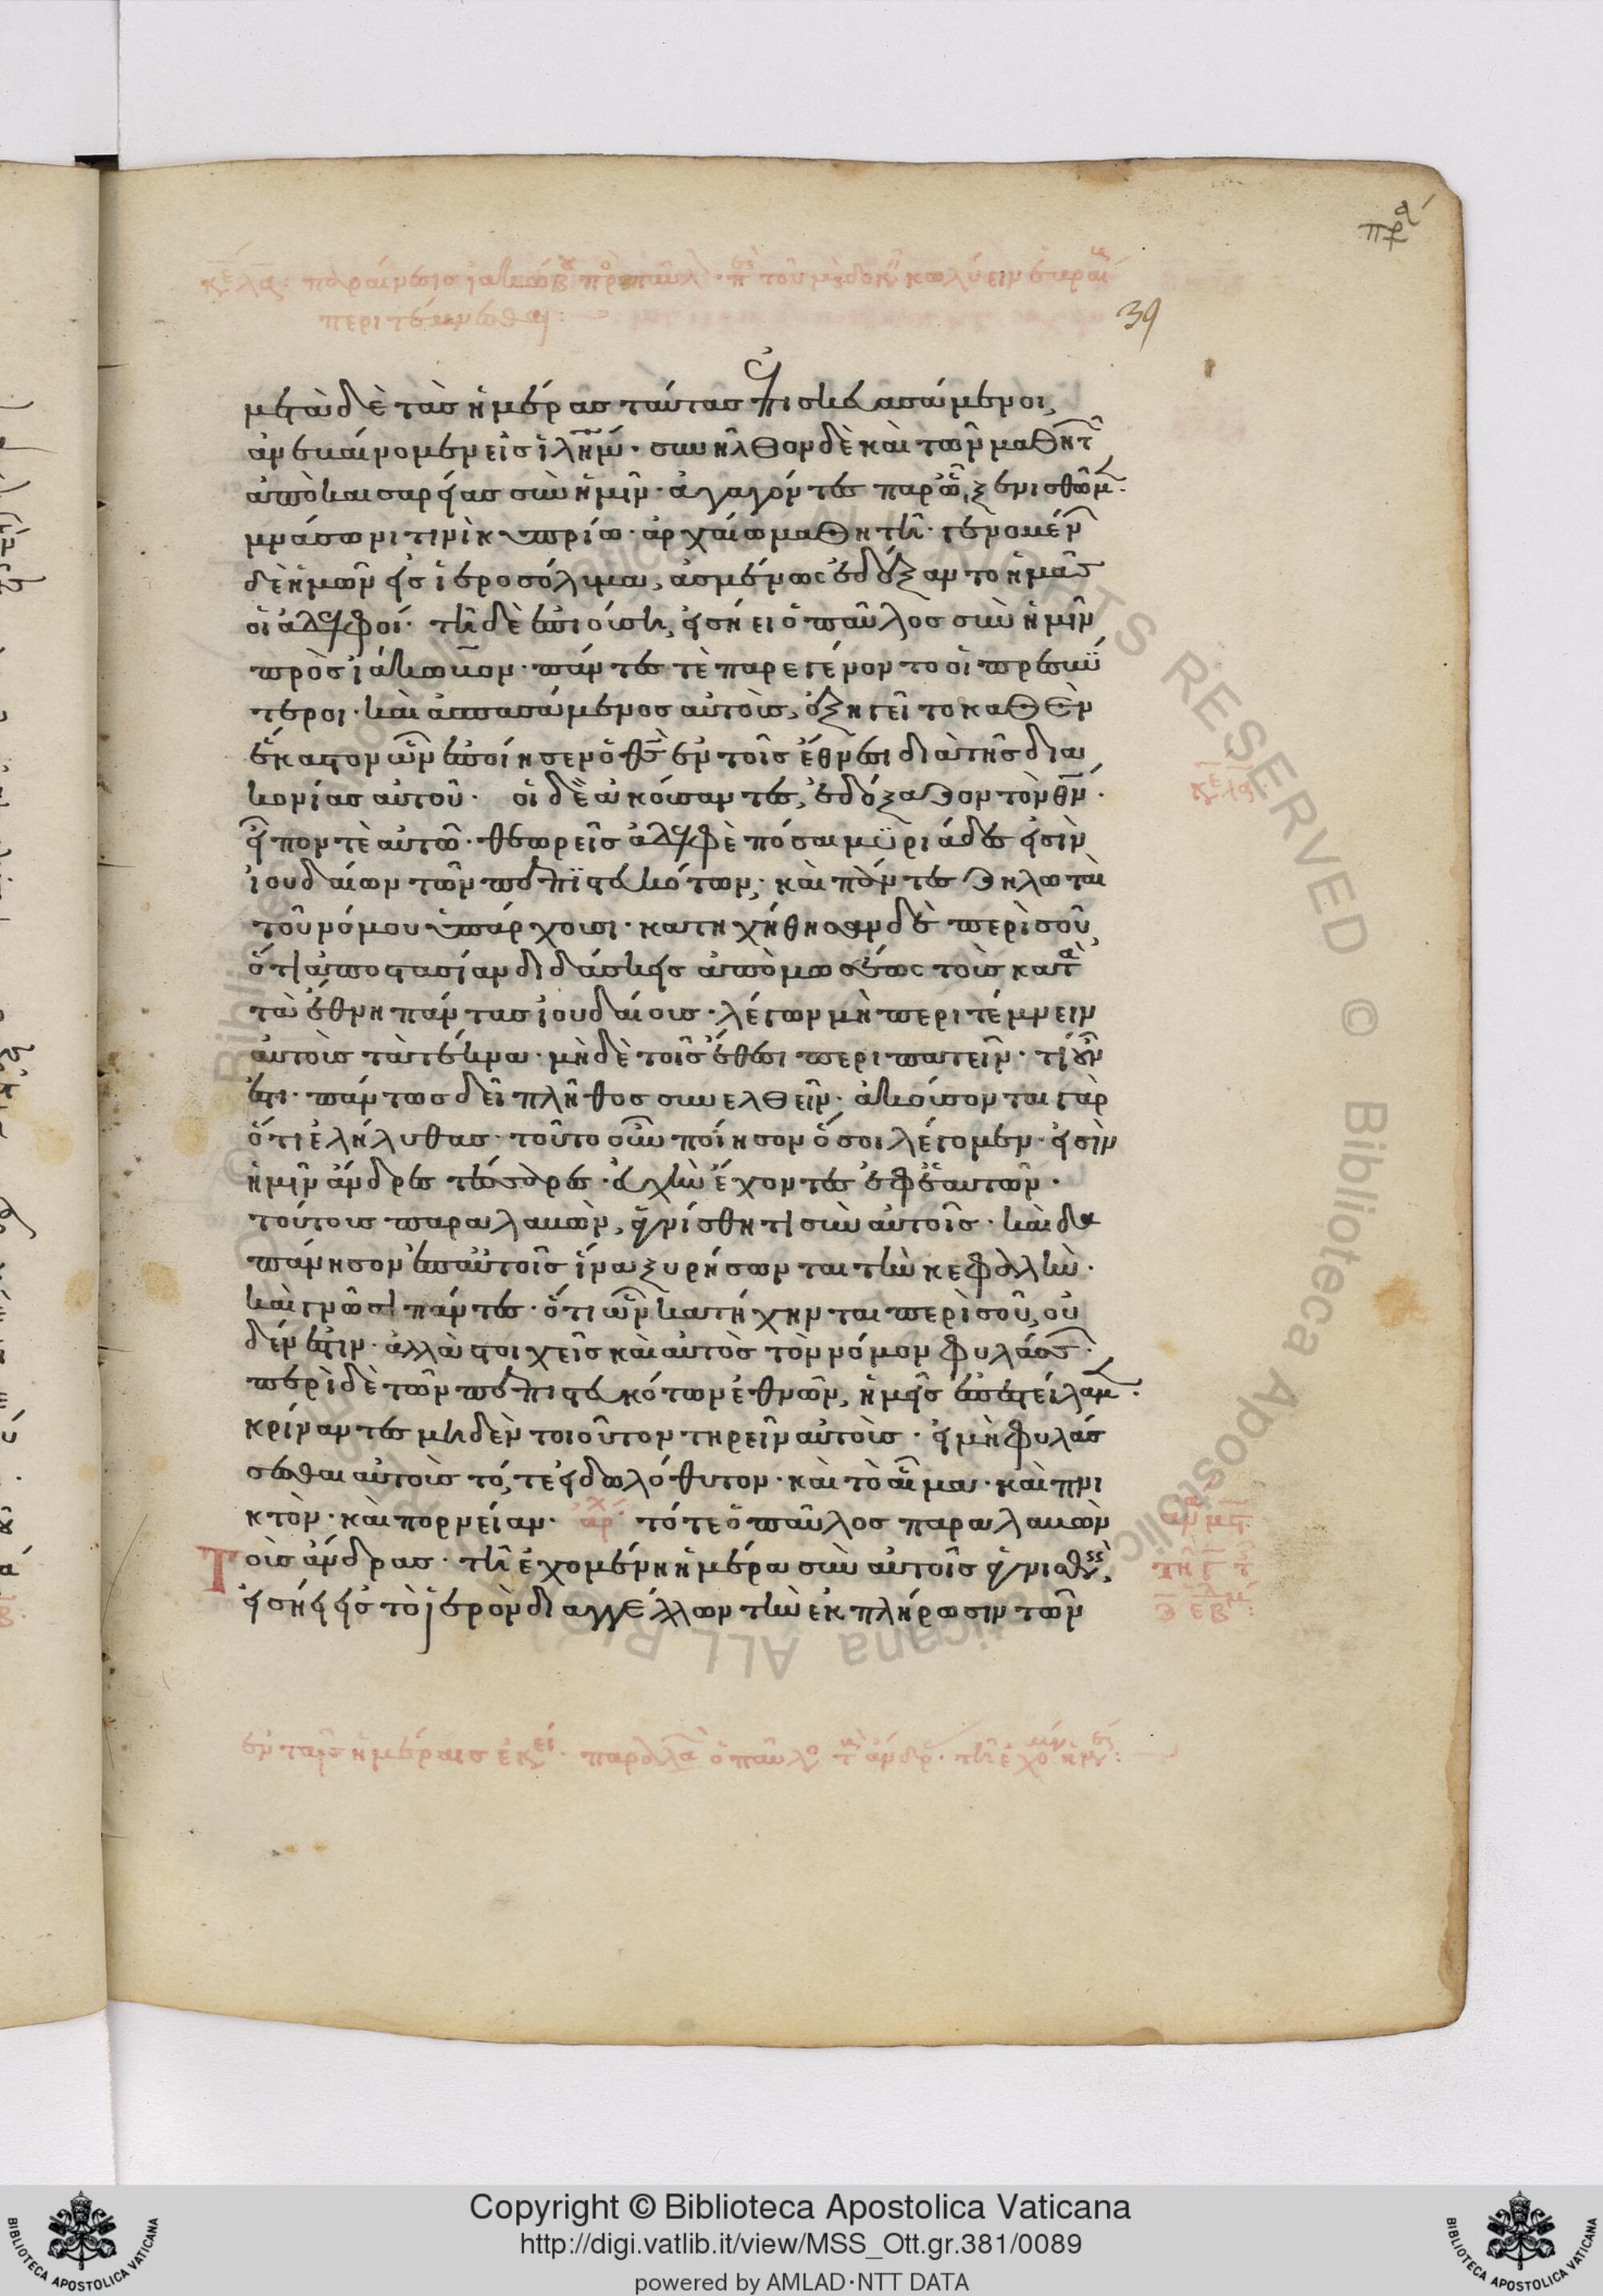 πρα
κε λα: παραίνεσις ἰακώβου πρὸς παῦλον· περὶ τοῦ μὴ δοκεῖν κωλύειν ἑβραί
περιτέμνεσθαι:
39
μετὰ δὲ τὰς ἡμέρας ταύτας ἐπισκευασάμενοι,
ἀνεβαίνομεν εἰς ἱλημ· συνῆλθον δὲ καὶ τῶν μαθητ
ἀπὸ καισαρείας σὺν ἡμῖν· ἀγαγόντες παρ' ᾧ ξενισθῶμ·
μνάσωνι τινὶ κυπρίω· ἀρχαίω μαθητῆ· γενομέν
δὲ ἡμῶν εἰς ἱεροσόλυμα, ἀσμένως ἐδέξαντο ἡμᾶς
οἱ ἀδελφοί· τῆ δὲ ἐπιούση, εἰσήει ὁ παῦλος σὺν ἡμῖν
πρὸς ἰάκωβον· πάντες τὲ παρεγένοντο οἱ πρεσβύ
τεροι· καὶ ἀσπασάμενος αὐτοὺς, ἐξηγεῖτο καθ' ἓν
ἕκαστον ὧν ἐποίησεν ὁ θς ἐν τοῖς ἔθνεσι διὰ τῆς δια
κονίας αὐτοῦ· οἱ δὲ ἀκούσαντες, ἐδόξαζον τὸν θν·
εἶπον τὲ αὐτῶ· θεωρεῖς ἀδελφὲ πόσαι μυριάδες εἰσὶν
ἰουδαίων τῶν πεπιστευκότων· καὶ πάντες ζηλωταὶ
τοῦ νόμου ὑπάρχουσι· κατηχήθησαν δὲ περὶ σοῦ,
ὅτι ἀποστασίαν διδάσκεις ἀπὸ μωσέως τοὺς κατὰ
τὰ ἔθνη πάντας ἰουδαίους· λέγων μὴ περιτέμνειν
αὐτοὺς τὰ τέκνα· μὴ δὲ τοῖς ἔθεσι περιπατεῖν· τί οὖν
ἐστι· πάντως δεῖ πλῆθος συνελθεῖν· ἀκούσονται γὰρ
ὅτι ἐλήλυθας· τοῦτο οὖν ποίησον ὅ σοι λέγομεν· εἰσὶν
ἡμῖν ἄνδρες τέσσαρες· εὐχὴν ἔχοντες ἐφ' ἑαυτῶν·
τούτους παραλαβὼν, ἁγνίσθητι σὺν αὐτοῖς· καὶ δα
πάνησον ἐπ' αὐτοῖς ἵνα ξυρήσωνται τὴν κεφαλήν·
καὶ γνῶσι πάντες· ὅτι ὧν κατήχηνται περὶ σοῦ, οὐ
δέν ἐστιν· ἀλλὰ στοιχεῖς καὶ αὐτὸς τὸν νόμον φυλάσς·
περὶ δὲ τῶν πεπιστευκότων ἐθνῶν, ἡμεῖς ἐπεστείλαμ·
κρίναντες μηδὲν τοιοῦτον τηρεῖν αὐτοὺς· εἰ μὴ φυλάσ
σεσθαι αὐτοὺς τό, τε εἰδωλόθυτον· καὶ τὸ αἷμα· καὶ πνι
κτὸν· καὶ πορνείαν· ἀρχ τότε ὁ παῦλος παραλαβὼν
Τοὺς ἄνδρας· τῆ ἐχομένη ἡμέρα σὺν αὐτοῖς ἁγνισθεὶς,
εἰσήει εἰς τὸ ἱερὸν διαγγέλλων τὴν ἐκπλήρωσιν τῶν
ἐν ταῖς ἡμέραις ἐκεί· παραλα ὁ παῦλος τ ἄνδρ· τῆ ἐχομέν ἡμε: